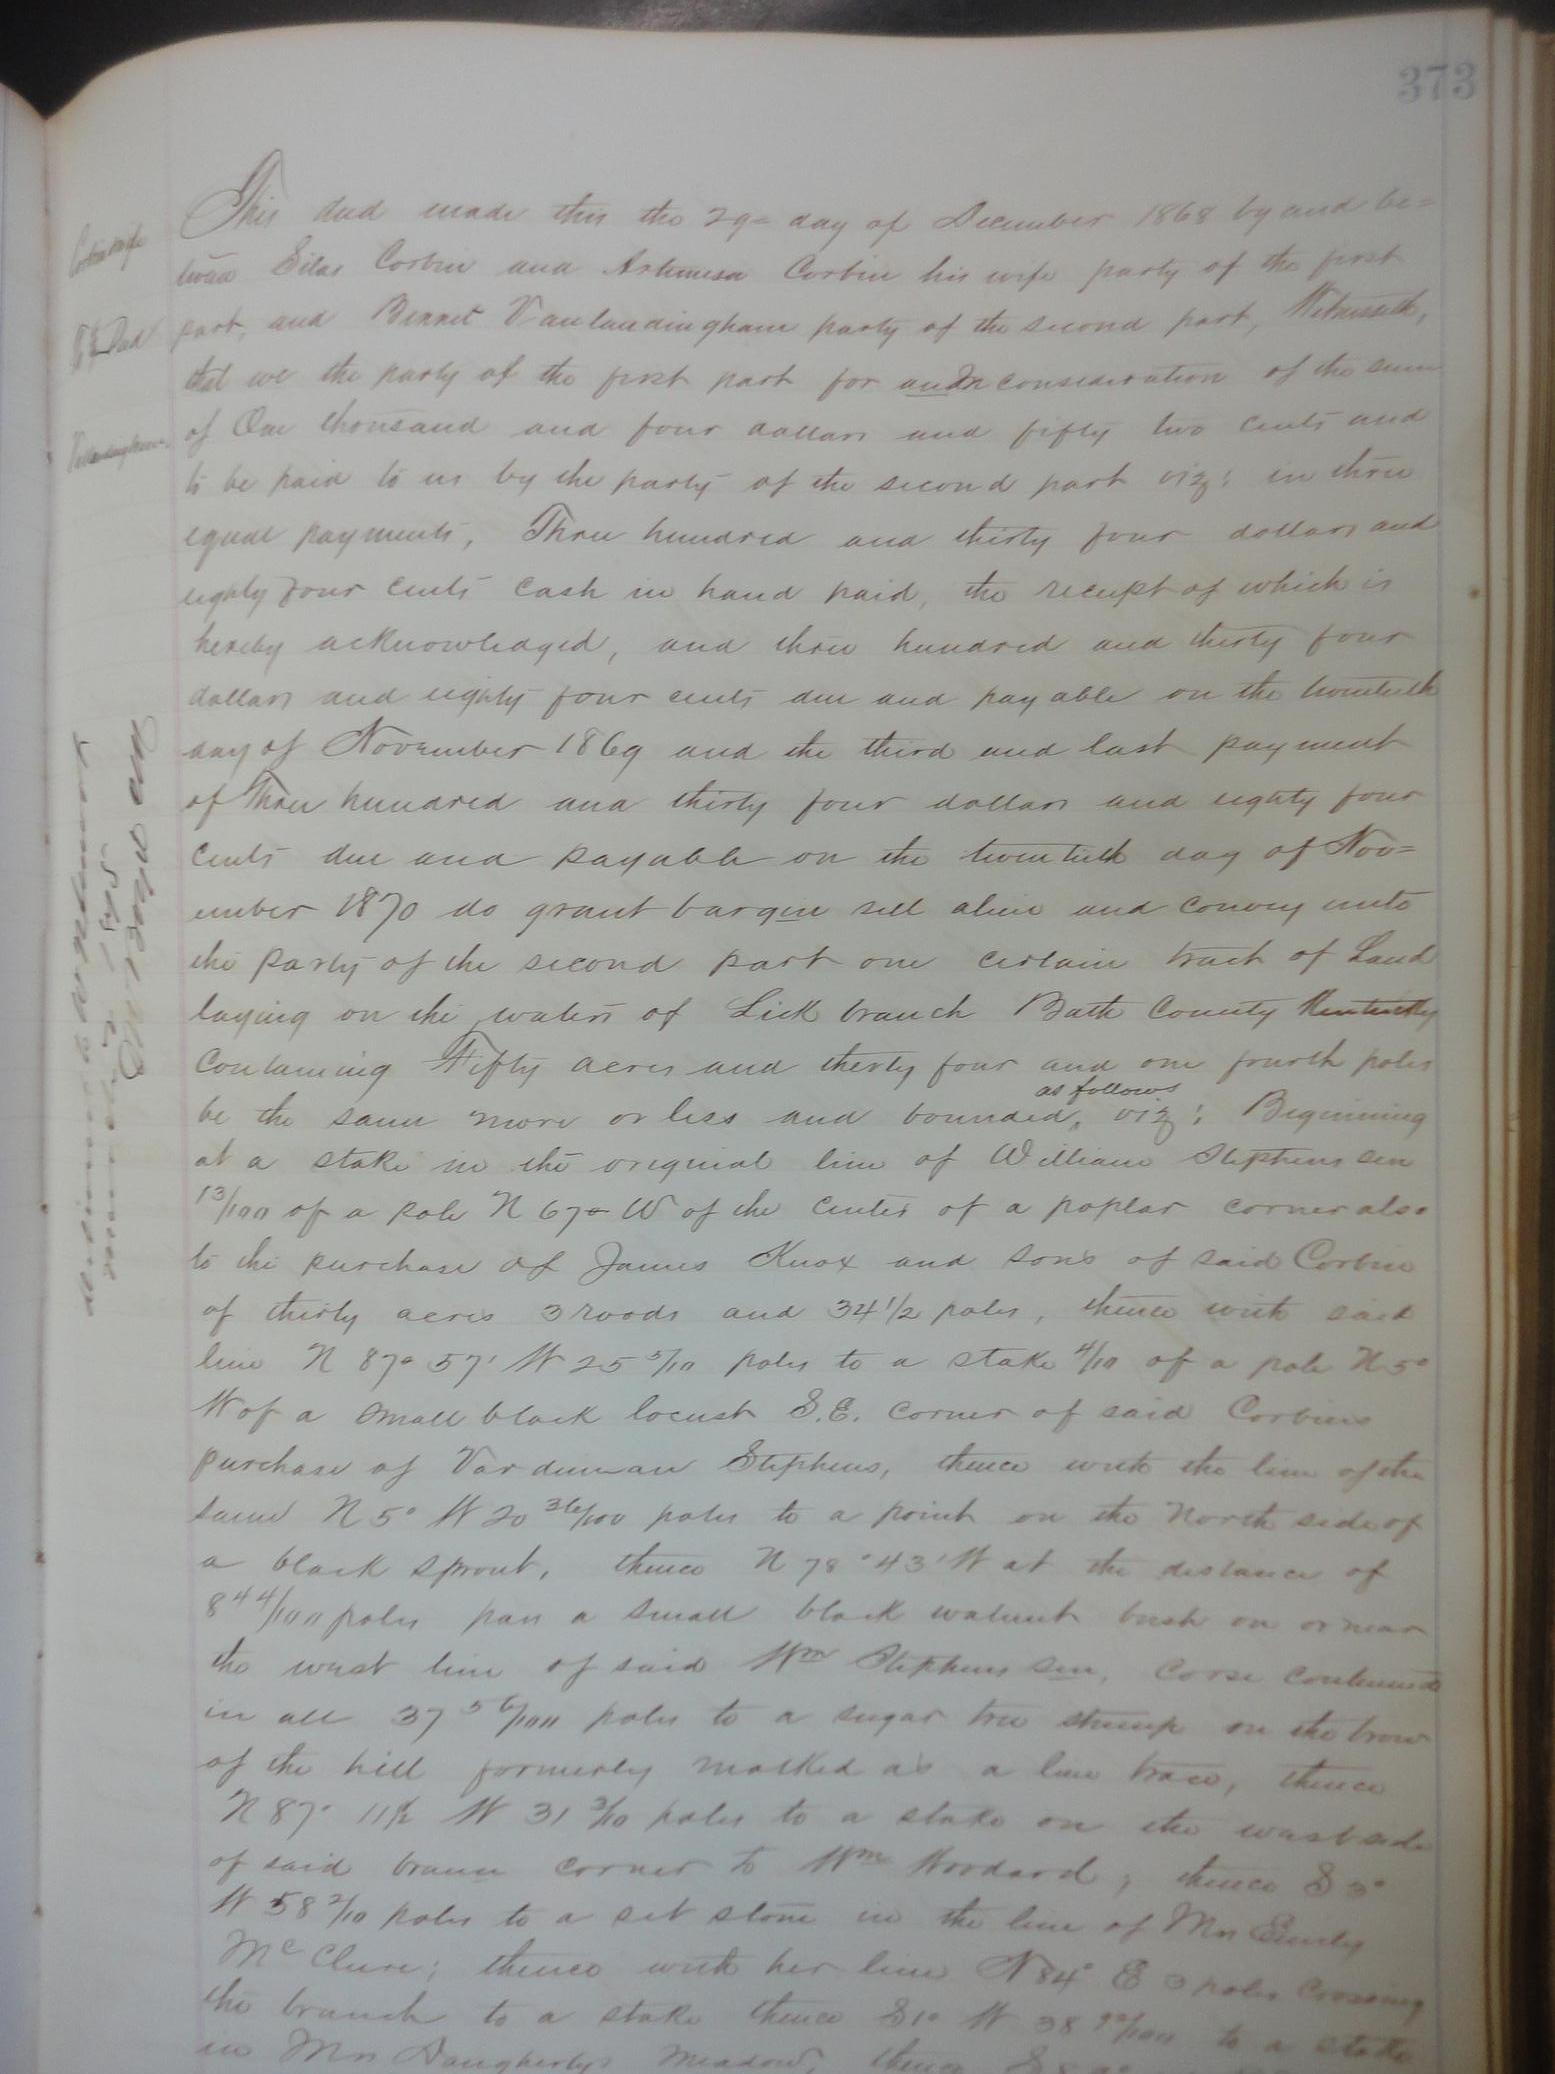 373
This deed made this the 29= day of December 1868 by and be=
tween Silas Corbin and Artemesa Corbin his wife party of the first
part, and Bennet Vanlandingham party of the second part, Witnesseth,
that we the party of the first part for and in consideration of the sum
of One thousand and four dollars and fifty two cents and
to be paid to us by the party of the second part viz: in three
equal payments, Three hundred and thirty four dollars and
eighty four cents cash in hand paid, the receipt of which is
hereby acknowledged, and three hundred and thirty four
dollars and eighty four cents due and payable on the twentieth
day of November 1869 and the third and last payment
of Three hundred and thirty four dollars and eighty four
cents due and payable on the twentieth day of Nov=
ember 1870 do grant bargin sell alien and convey unto
the party of the second part one certain tract of Land
laying on the waters of Lick branch Bath County Kentucky
Containing Fifty acres and thirty four and one fourth poles
be the same more or less and bounded, as follows viz: Beginning
at a stake in the original line of William Stephens sen
13/100 of a pole N 67° W of the center of a poplar corner also
to the purchase of James Knox and sons of said Corbin
of thirty acres 3 roods and 34 1/2 poles, thence with said
line N 87° 57' W 25 5/10 poles to a stake 4/10 of a pole N 5°
W of a small black locust S.E. corner of said Corbins
purchase of Vardiman Stephens, thence with the line of the
same N 5° W 20 36/100 poles to a point on the North side of
a black sprout, thence N 78° 43' W at the distance of
8 44/100 poles pass a small black walnut bush on or near
the west line of said Wm Stephens sen, corse continued
in all 37 56/100 poles to a sugar tree stump on the brow
of the hill formerly marked as a line trace, thence
N 87° 11 1/2 W 31 3/10 poles to a stake on the west side
of said branch corner to Wm Woodard, thence S 3°
W 58 2/10 poles to a set stone in the line of Mrs Emily
McClure; thence with her line N 84° E 3 poles crossing
the branch to a stake thence S 1° W 38 to a stake
in Mrs Daugherty's meadow, thence
Corbin & wife
To Deed
Vanlandingham